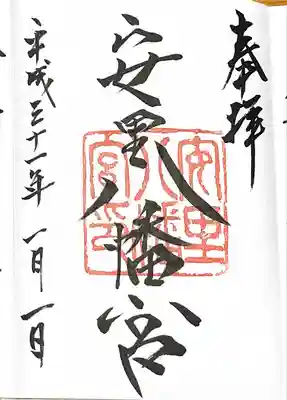 奉拝
安里八幡宮
安里八幡宮印
平成三十一年一月一日